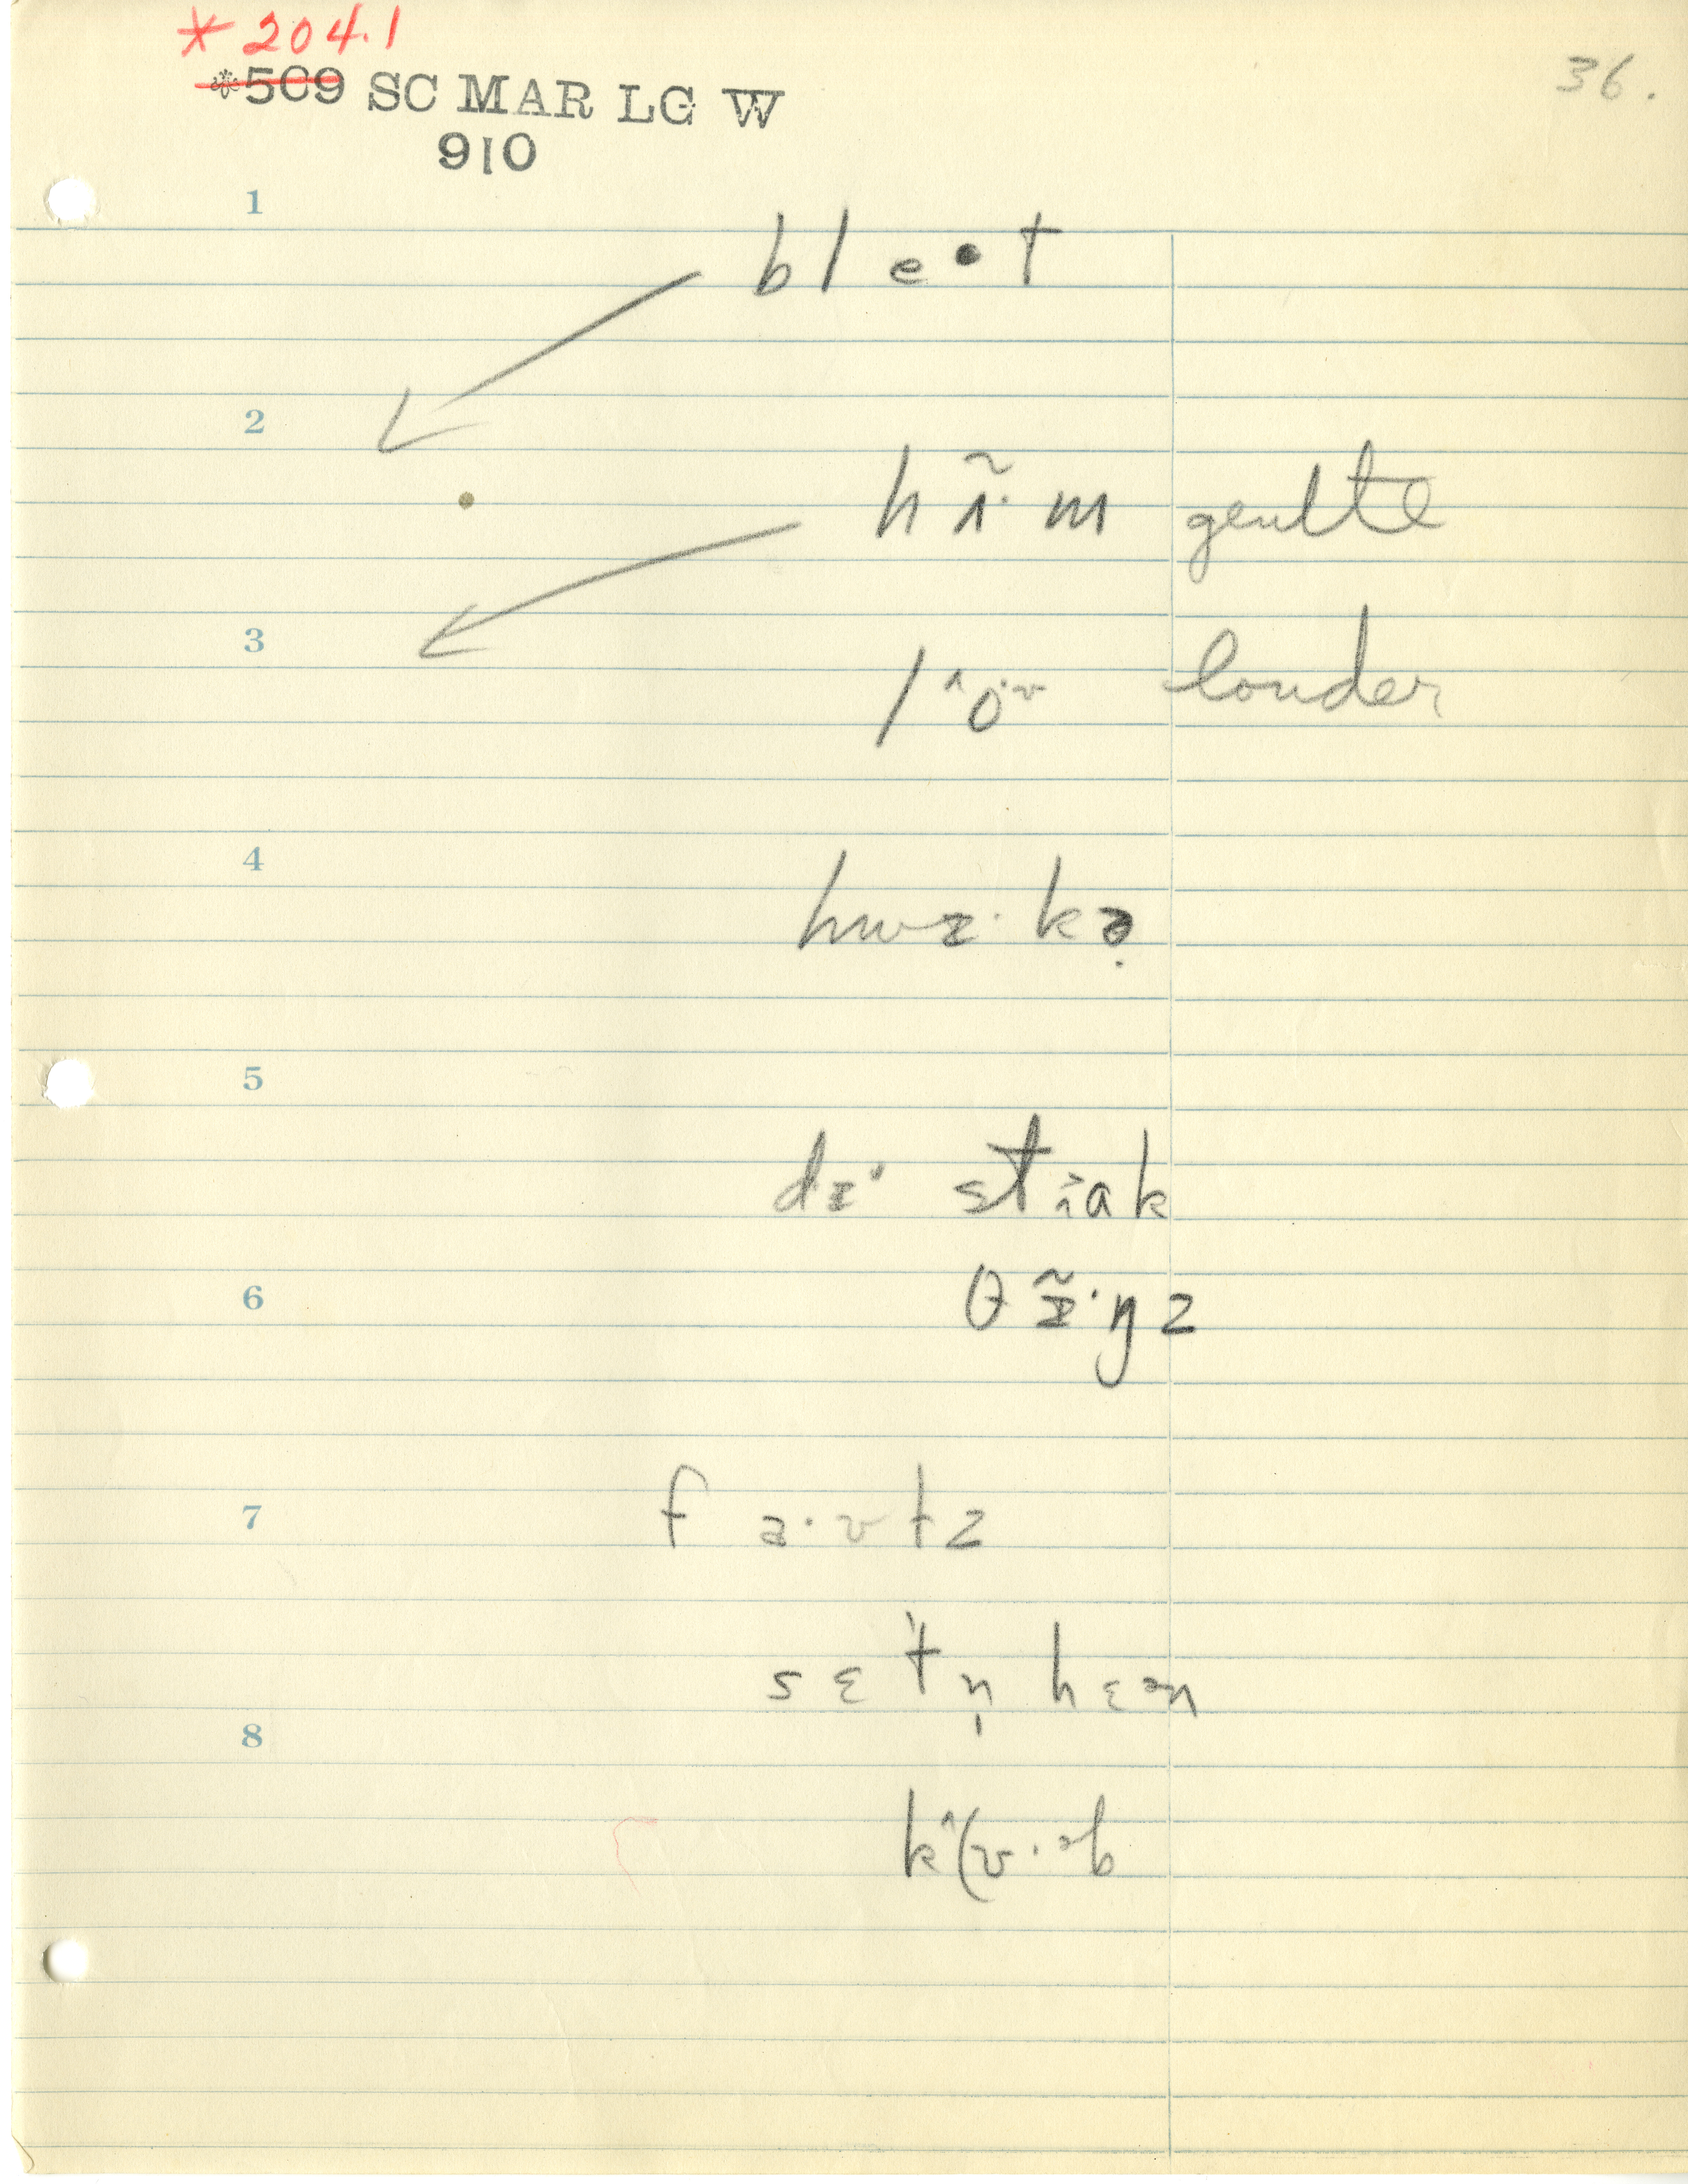 *204.1
36.
*5C9 SC MAR LG W
910
1
b l e • t
2
h ɪ̃· m gentle
3
l ˄o·ᵛ louder
4
hwɪ· kə̣
5
dɪ· stɪ̆ak
6
θ ɪ̃·ŋ z
7
f a·ʊ t z
s ɛ t n̩ h ɛᵊn
8
k˄(ʊ·ᵊb